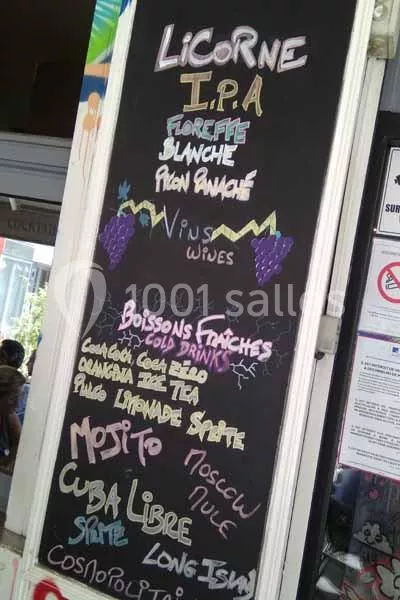 LICORNE
I.P.A
FLOREFFE
BLANCHE
PICON PANACHÉ
VINS
WINES
BOISSONS FRAÎCHES
COLD DRINKS
COCA COLA COCA ZERO
ORANGINA ICE TEA
PAGO LIMONADE SPRITE
MOJITO
MOSCOW
MULE
CUBA LIBRE
SPRITE
LONG ISLAND
COSMOPOLITAN
COCKTAIL
SUR
1001 salles